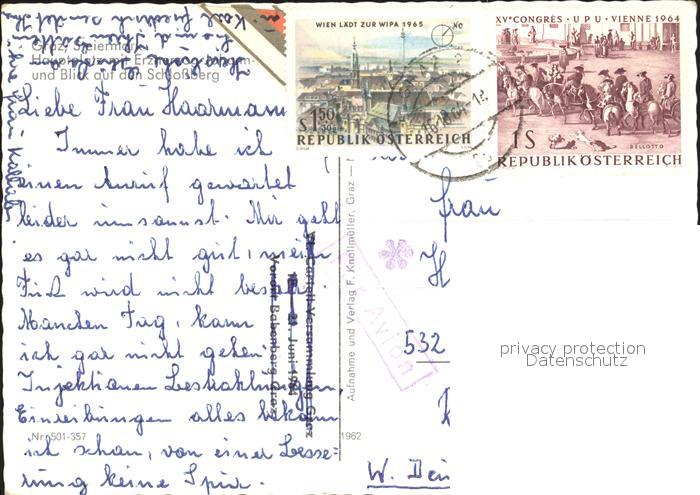 Graz, Steiermark
Hauptplatz mit Erzherzog
und Blick auf den Schloßberg
Liebe Frau Haarmann
Immer habe ich
einen Anruf gewartet
leider umsonst. Mir geht
es gar nicht gut, mein
Fuß wird nicht besser.
Manchen Tag, kann
ich gar nicht gehen.
Injektionen Bestrahlungen,
Einreibungen alles bekom
ich schon, von einer Besse-
rung keine Spur.
Nr. 501-357
1962
Aufnahme und Verlag F. Knollmüller, Graz
Juni 1964
Par Avion
WIEN LÄDT ZUR WIPA 1965
NO
S 1.50
REPUBLIK ÖSTERREICH
XV^e CONGRÈS · UPU · VIENNE 1964
1 S
BELLOTTO
REPUBLIK ÖSTERREICH
Frau
H
532
W. Deu
privacy protection
Datenschutz